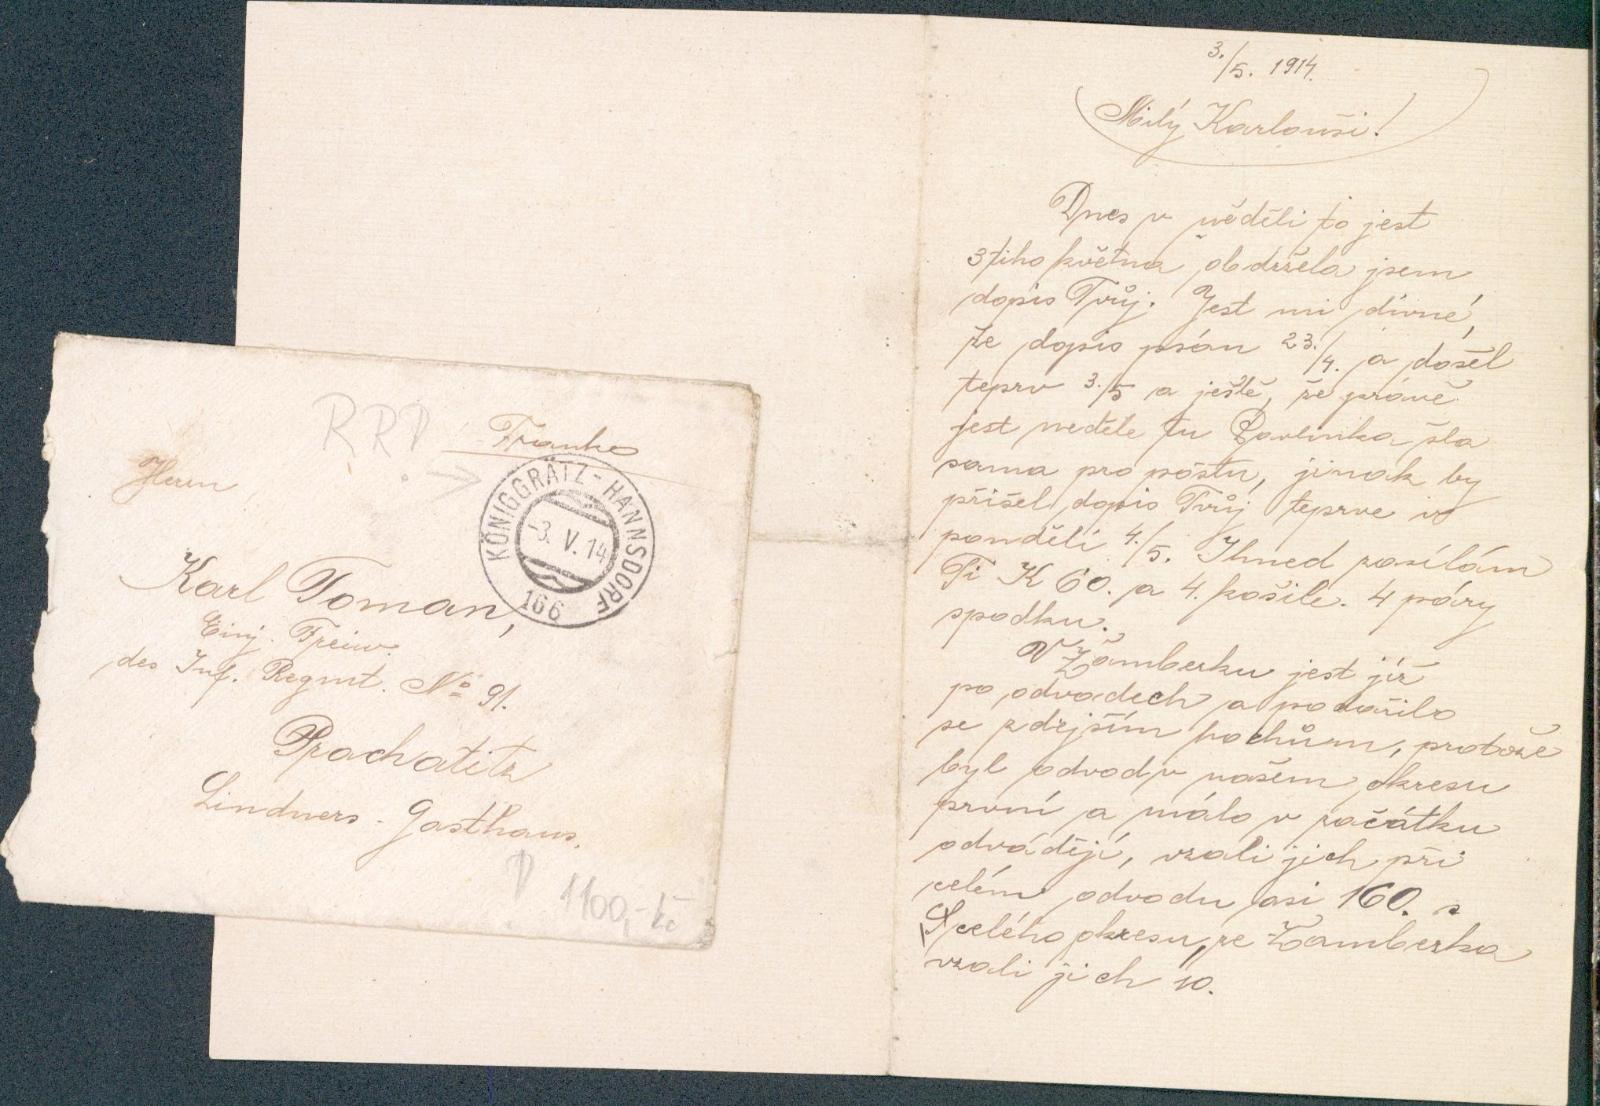 RRP
Franko
KÖNIGGRÄTZ-HANNSDORF
-3. V. 14
166
Herrn
Karl Toman,
Einj. Freiw.
des Inf. Regmt. No 91.
Prachatitz
Lindners-Gasthaus.
1100,- Kč
3./5. 1914.
Milý Karlouši!
Dnes v neděli to jest
3tího května obdržela jsem
dopis Tvůj. Jest mi divné,
že dopis psán 23./4. a došel
teprv 3./5 a ještě, že právě
jest neděle tu šla
sama pro poštu, jinak by
přišel dopis Tvůj teprve v
pondělí 4./5. Ihned zasílám
Ti K 60. a 4. košile. 4 páry
spodku.
V Žamberku jest již
po odvodech a podařilo
se zdejším hochům, protože
byl odvod v našem okresu
první a málo v začátku
odvádějí, vzali jich při
celém odvodu asi 160. z
celého okresu, ze Žamberka
vzali jich 10.